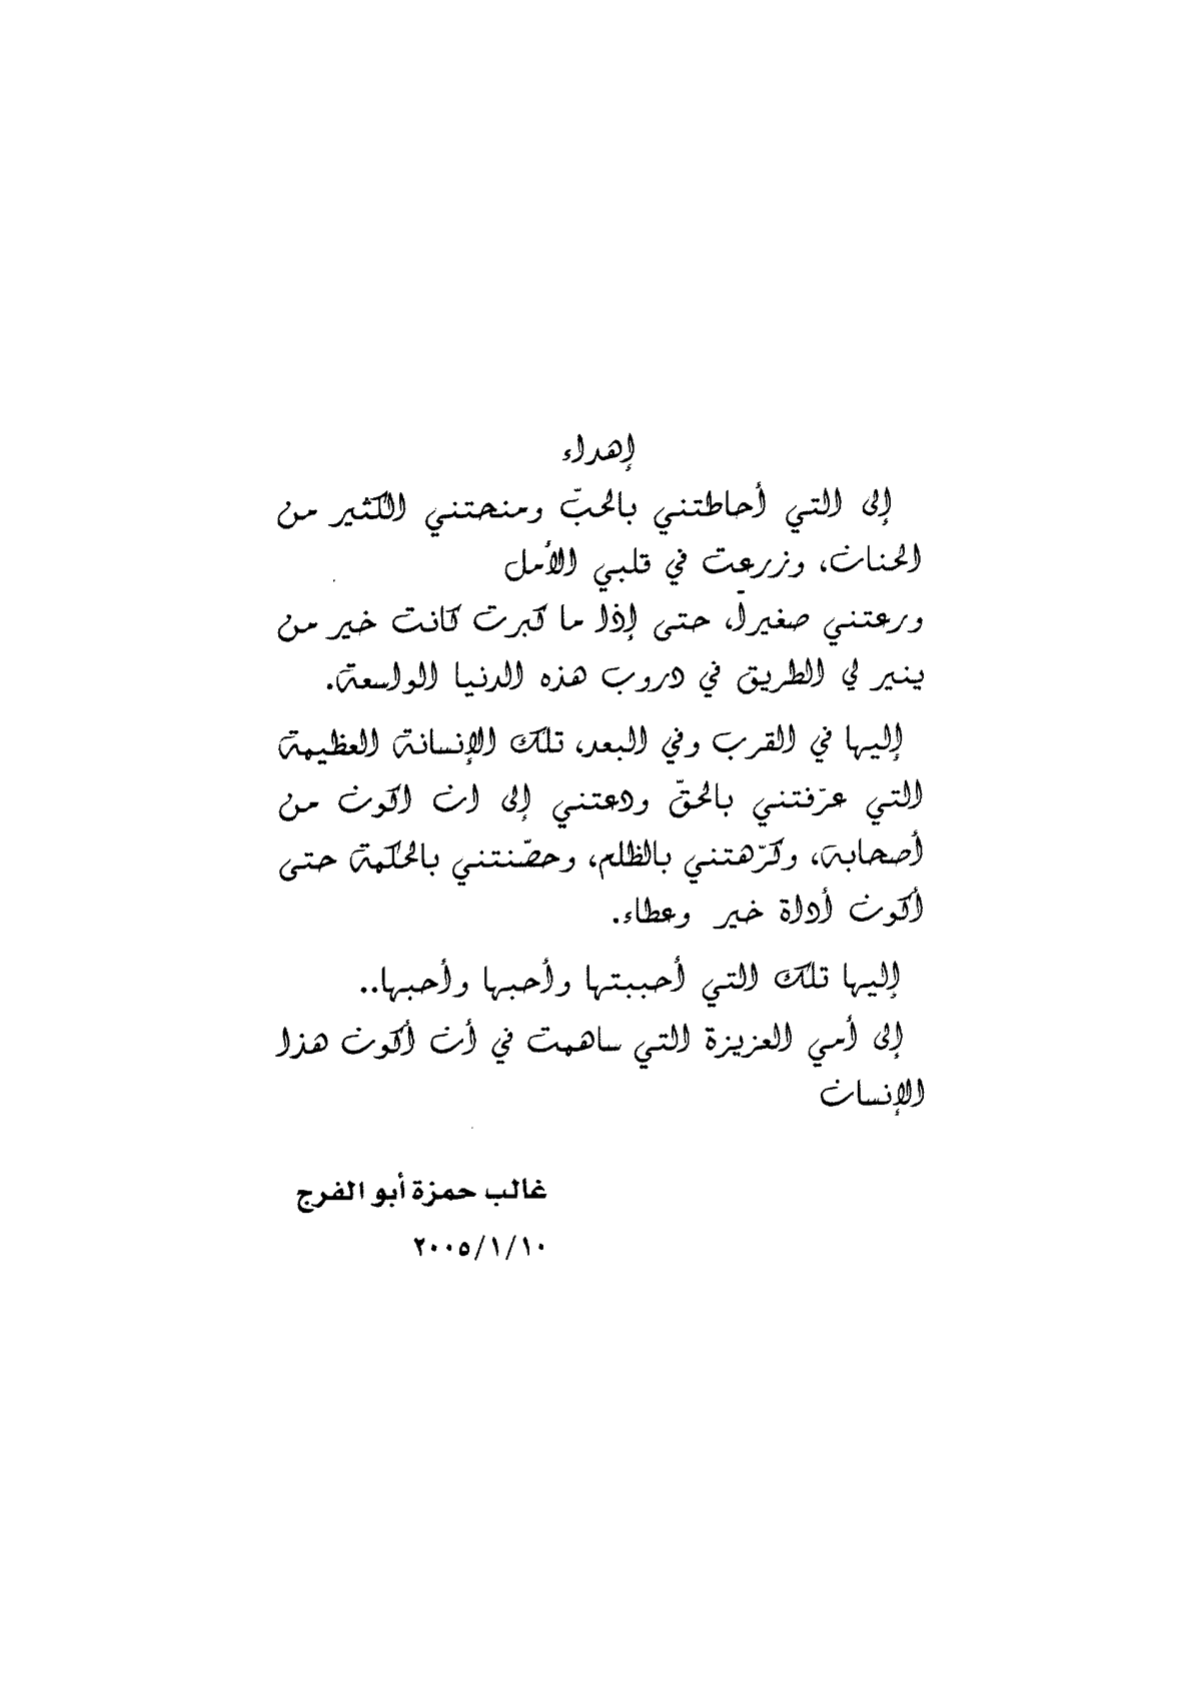 إهداء
إلى التي أحاطتني بالحبّ ومنحتني الكثير من
الحنان، وزرعت في قلبي الأمل
ورعتني صغيراً، حتى إذا ما كبرت كانت خير من
ينير لي الطريق في دروب هذه الدنيا الواسعة.
إليها في القرب وفي البعد، تلك الإنسانة العظيمة
التي عرّفتني بالحقّ ودعتني إلى ان اكون من
أصحابه، وكرّهتني بالظلم، وحصّنتني بالحكمة حتى
أكون أداة خير وعطاء.
إليها تلك التي أحببتها وأحبها وأحبها..
إلى أمي العزيزة التي ساهمت في أن أكون هذا
الإنسان
غالب حمزة أبو الفرج
٢٠٠٥/١/١٠